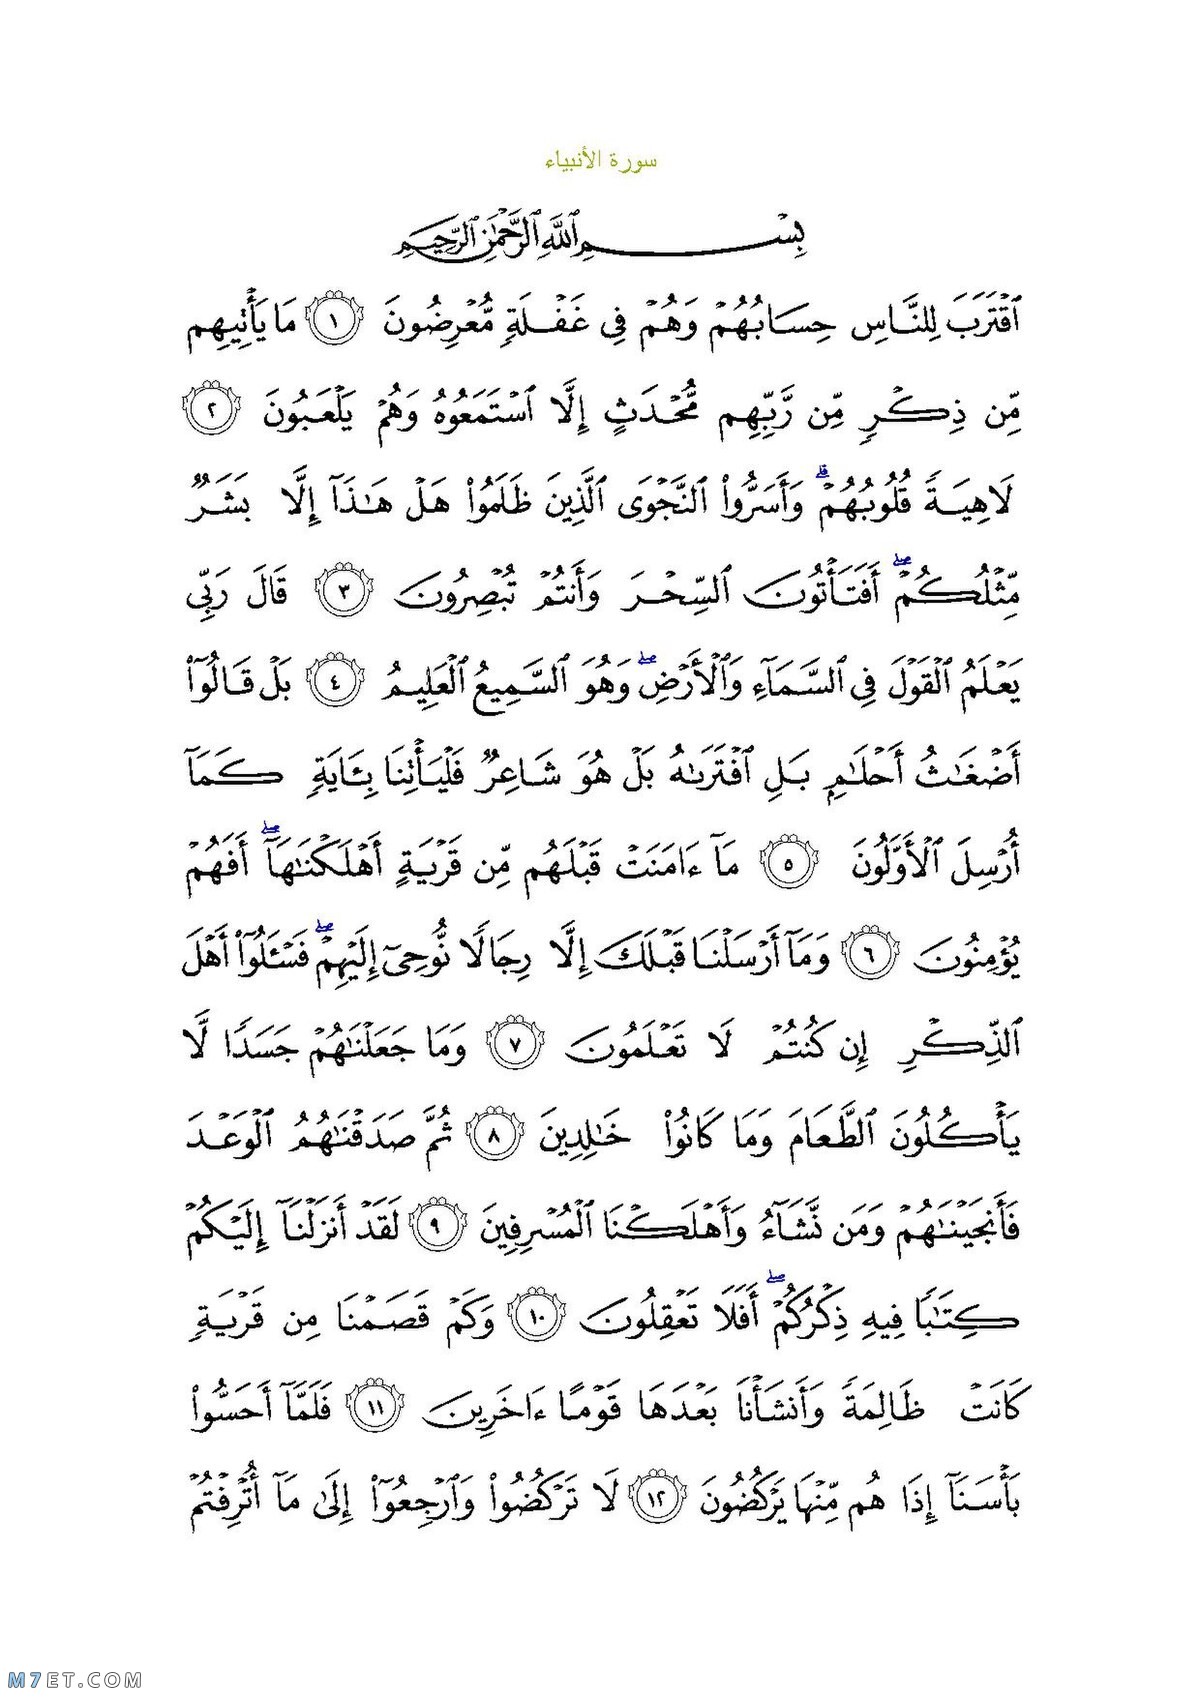 سورة الأنبياء
بِسْمِ ٱللَّهِ ٱلرَّحْمَٰنِ ٱلرَّحِيمِ
ٱقْتَرَبَ لِلنَّاسِ حِسَابُهُمْ وَهُمْ فِى غَفْلَةٍۢ مُّعْرِضُونَ ١ مَا يَأْتِيهِم
مِّن ذِكْرٍۢ مِّن رَّبِّهِم مُّحْدَثٍ إِلَّا ٱسْتَمَعُوهُ وَهُمْ يَلْعَبُونَ ٢
لَاهِيَةًۭ قُلُوبُهُمْ ۗ وَأَسَرُّوا۟ ٱلنَّجْوَى ٱلَّذِينَ ظَلَمُوا۟ هَلْ هَٰذَآ إِلَّا بَشَرٌۭ
مِّثْلُكُمْ ۖ أَفَتَأْتُونَ ٱلسِّحْرَ وَأَنتُمْ تُبْصِرُونَ ٣ قَالَ رَبِّى
يَعْلَمُ ٱلْقَوْلَ فِى ٱلسَّمَآءِ وَٱلْأَرْضِ ۖ وَهُوَ ٱلسَّمِيعُ ٱلْعَلِيمُ ٤ بَلْ قَالُوٓا۟
أَضْغَٰثُ أَحْلَٰمٍۭ بَلِ ٱفْتَرَىٰهُ بَلْ هُوَ شَاعِرٌۭ فَلْيَأْتِنَا بِـَٔايَةٍۢ كَمَآ
أُرْسِلَ ٱلْأَوَّلُونَ ٥ مَآ ءَامَنَتْ قَبْلَهُم مِّن قَرْيَةٍ أَهْلَكْنَٰهَآ ۖ أَفَهُمْ
يُؤْمِنُونَ ٦ وَمَآ أَرْسَلْنَا قَبْلَكَ إِلَّا رِجَالًۭا نُّوحِىٓ إِلَيْهِمْ ۖ فَسْـَٔلُوٓا۟ أَهْلَ
ٱلذِّكْرِ إِن كُنتُمْ لَا تَعْلَمُونَ ٧ وَمَا جَعَلْنَٰهُمْ جَسَدًۭا لَّا
يَأْكُلُونَ ٱلطَّعَامَ وَمَا كَانُوا۟ خَٰلِدِينَ ٨ ثُمَّ صَدَقْنَٰهُمُ ٱلْوَعْدَ
فَأَنجَيْنَٰهُمْ وَمَن نَّشَآءُ وَأَهْلَكْنَا ٱلْمُسْرِفِينَ ٩ لَقَدْ أَنزَلْنَآ إِلَيْكُمْ
كِتَٰبًۭا فِيهِ ذِكْرُكُمْ ۖ أَفَلَا تَعْقِلُونَ ١٠ وَكَمْ قَصَمْنَا مِن قَرْيَةٍۢ
كَانَتْ ظَالِمَةًۭ وَأَنشَأْنَا بَعْدَهَا قَوْمًا ءَاخَرِينَ ١١ فَلَمَّآ أَحَسُّوا۟
بَأْسَنَآ إِذَا هُم مِّنْهَا يَرْكُضُونَ ١٢ لَا تَرْكُضُوا۟ وَٱرْجِعُوٓا۟ إِلَىٰ مَآ أُتْرِفْتُمْ
M7ET.COM